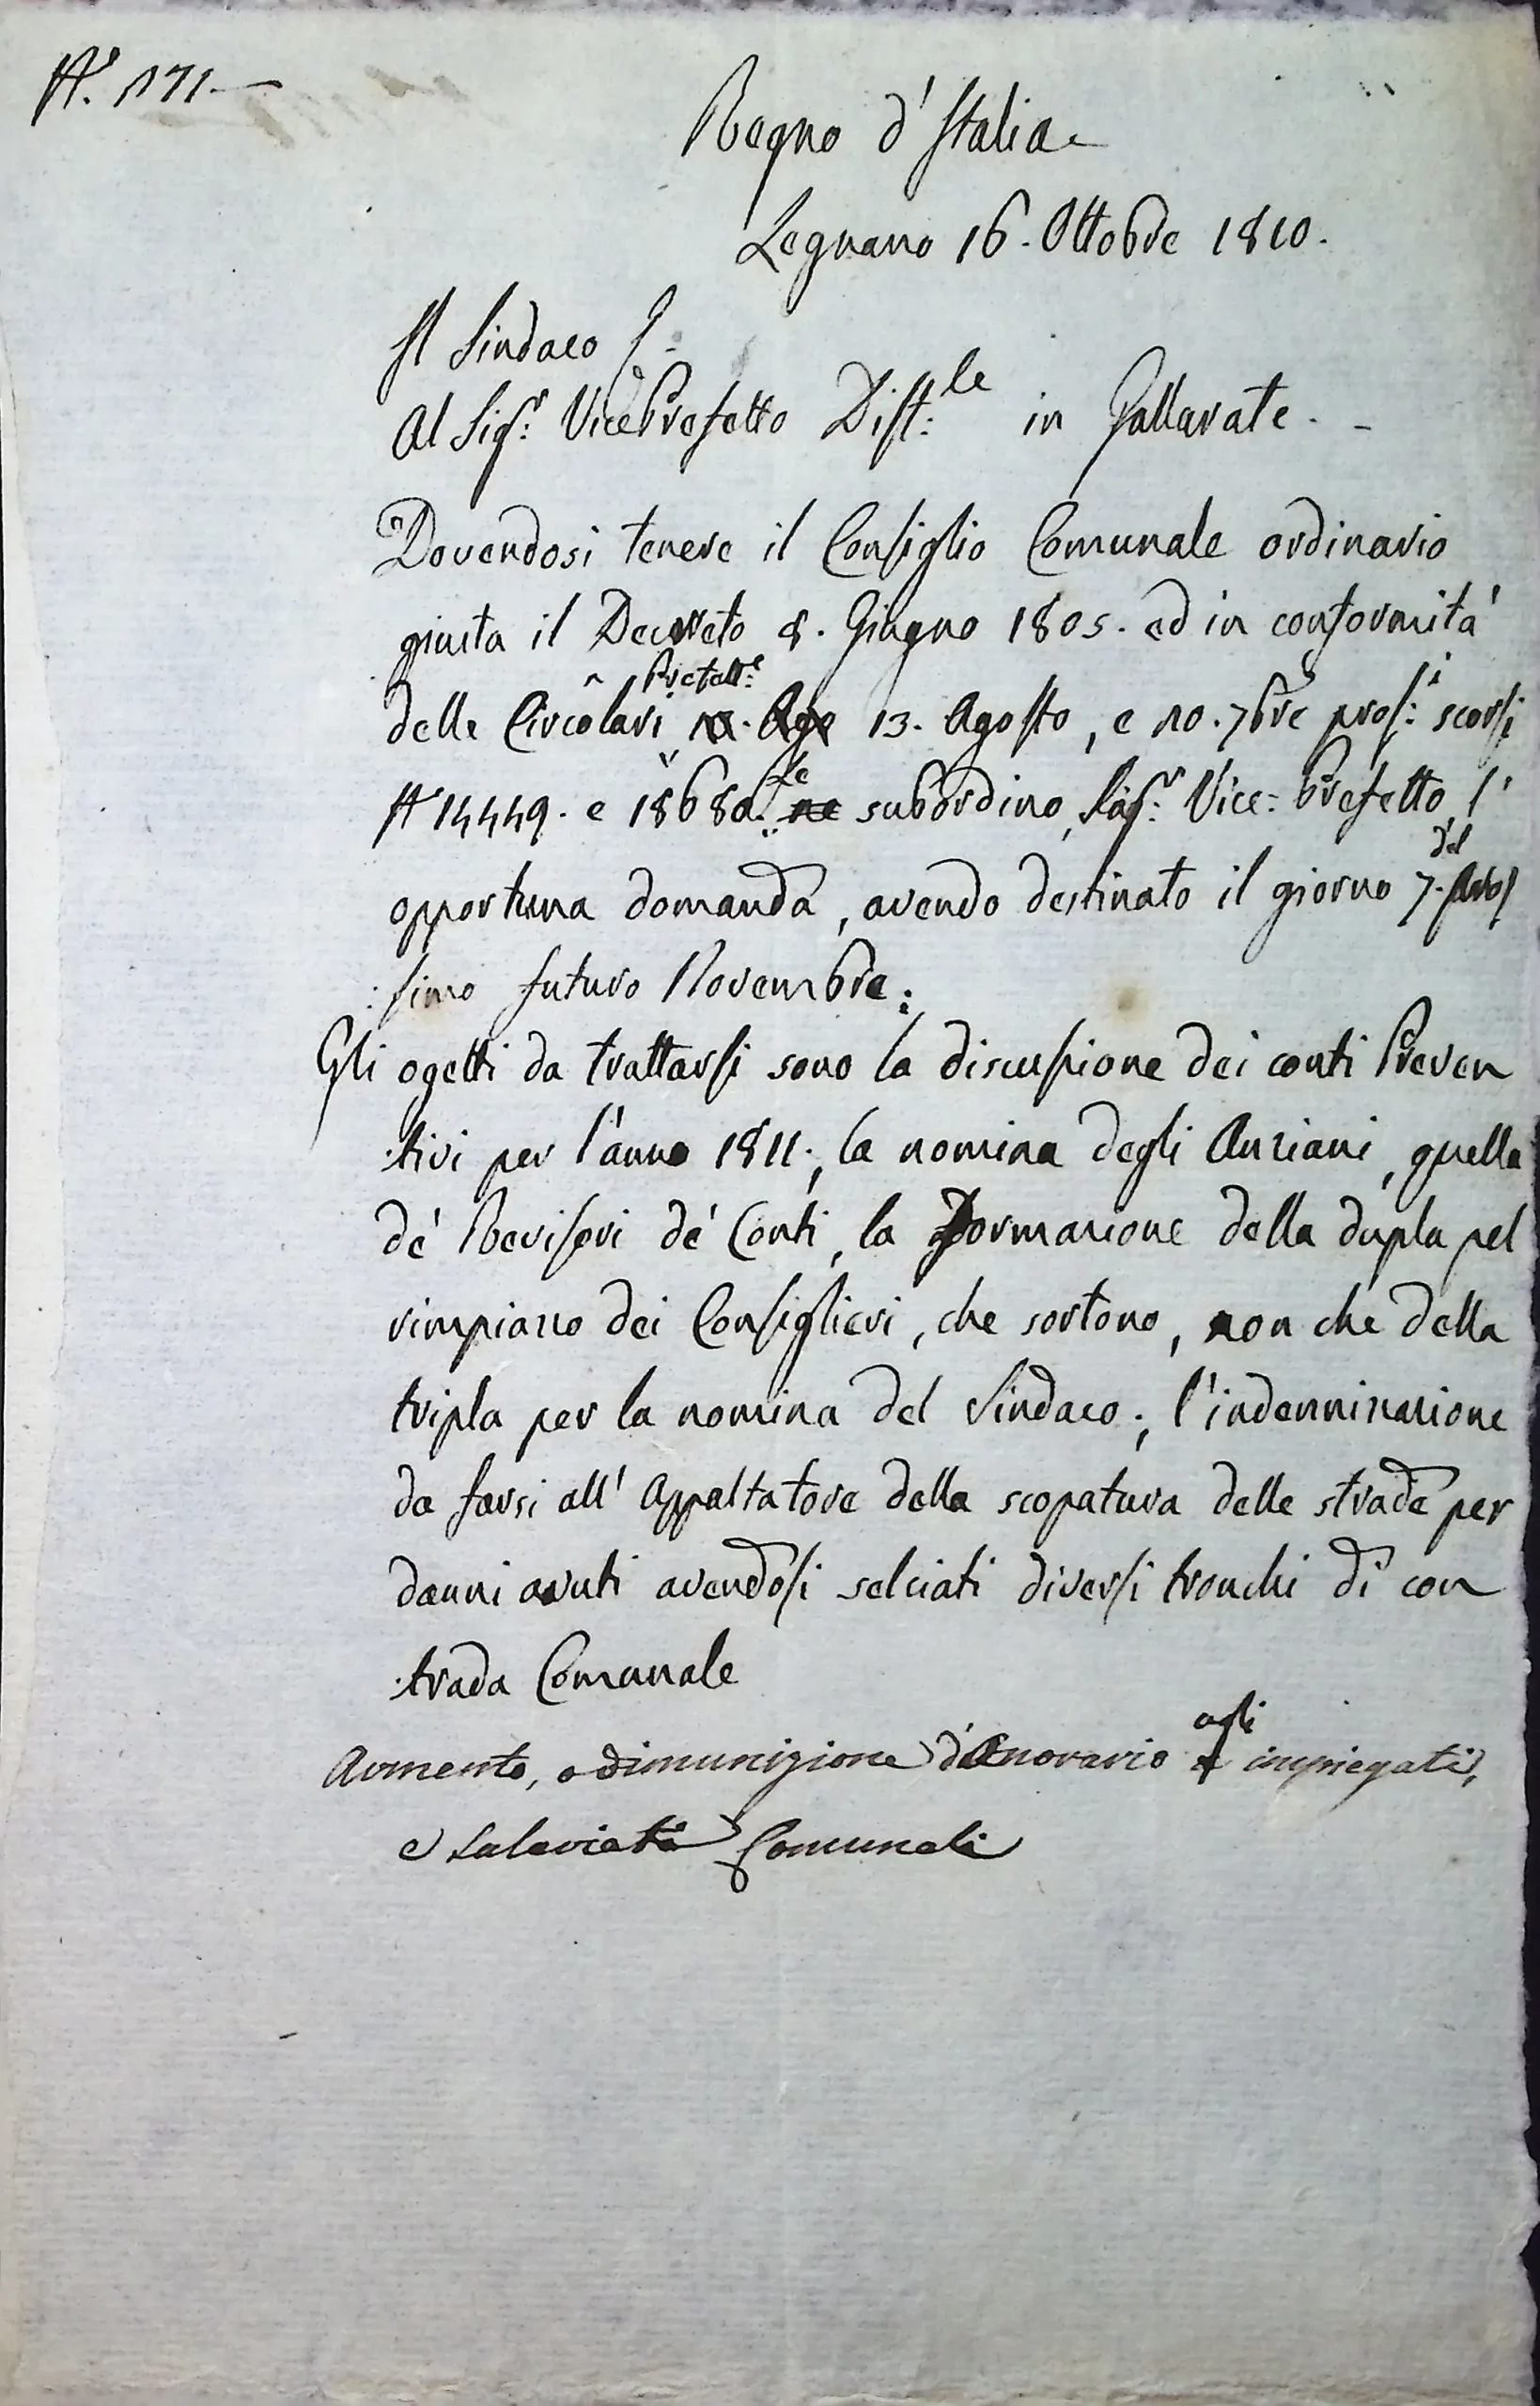 N.° 171.
Regno d'Italia
Legnano 16. Ottobre 1810.
Il Sindaco
Al Sig.r VicePrefetto Dist:le in Gallarate.
Dovendosi tenere il Consiglio Comunale ordinario
giusta il Decreto 8. Giugno 1805. ed in conformità
Prefett:e
delle Circolari 13. Agosto, e 10. 7bre pros:i scorsi
N 14449. e 18680. Le subordino, Sig.r Vice-Prefetto, l'
opportuna domanda, avendo destinato il giorno 7. del pros
simo futuro Novembre;
Gli ogetti da trattarsi sono la discussione dei conti Preven
tivi per l'anno 1811., la nomina degli Anziani, quella
de' Revisori de' Conti, la Formazione della dupla pel
rimpiazzo dei Consiglieri, che sortono, non che della
tripla per la nomina del Sindaco; l'indennizzazione
da farsi all' Appaltatore della scopatura delle strade per
danni avuti avendosi selciati diversi tronchi di con
trada Comunale
Aumento, o dimunizione d'Onorario agli impiegati,
e salariati Comunali